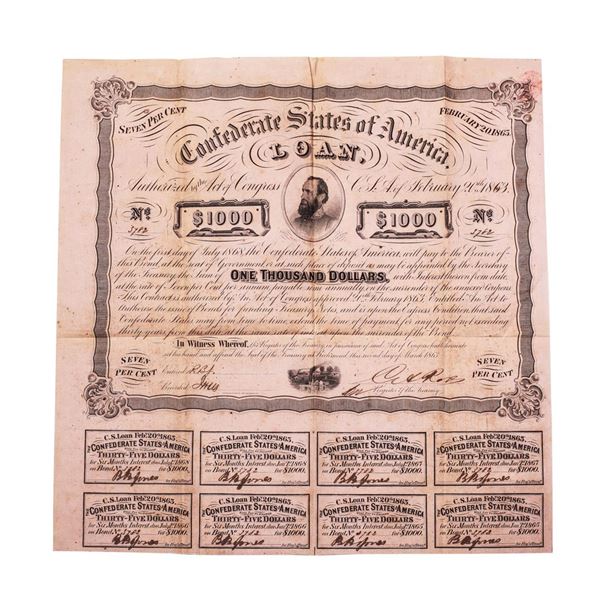 SEVEN PER CENT
FEBRUARY 20, 1863.
Confederate States of America
LOAN,
Authorized by the Act of Congress C. S. A. of February 20th 1863.
No. 3762
$1000
$1000
No. 3762
On the first day of July 1868, the Confederate States of America, will pay to the Bearer of
this Bond, at the seat of government, or at such place of deposit as may be appointed by the Secretary
of the Treasury, the Sum of ONE THOUSAND DOLLARS, with Interest thereon from date
at the rate of Seven per Cent per annum, payable semi annually, on the surrender of the annexed Coupons
This Contract is authorized by An Act of Congress approved 20th February 1863, Entitled An Act to
authorize the issue of Bonds for funding Treasury Notes, and is upon the Express Condition, that said
Confederate States may from time to time extend the time of payment for any period not exceeding
thirty years from this date at the same rate of interest upon the surrender of this Bond.
In Witness Whereof, the Register of the Treasury, in pursuance of said Act of Congress, hath hereunto
set his hand, and affixed the Seal of the Treasury, at Richmond, this second day of March 1863.
SEVEN PER CENT
Entered
Recorded
Register of the Treasury.
SEVEN PER CENT
C. S. Loan Feb. 20th 1863.
THE CONFEDERATE STATES OF AMERICA
THIRTY-FIVE DOLLARS
for Six Months Interest due July 1st 1868
on Bond No 3762 for $1000.
C. S. Loan Feb. 20th 1863.
THE CONFEDERATE STATES OF AMERICA
THIRTY-FIVE DOLLARS
for Six Months Interest due Jany 1st 1868
on Bond No 3762 for $1000.
C. S. Loan Feb. 20th 1863.
THE CONFEDERATE STATES OF AMERICA
THIRTY-FIVE DOLLARS
for Six Months Interest due July 1st 1867
on Bond No 3762 for $1000.
C. S. Loan Feb. 20th 1863.
THE CONFEDERATE STATES OF AMERICA
THIRTY-FIVE DOLLARS
for Six Months Interest due Jany 1st 1867
on Bond No 3762 for $1000.
C. S. Loan Feb. 20th 1863.
THE CONFEDERATE STATES OF AMERICA
THIRTY-FIVE DOLLARS
for Six Months Interest due July 1st 1866
on Bond No 3762 for $1000.
C. S. Loan Feb. 20th 1863.
THE CONFEDERATE STATES OF AMERICA
THIRTY-FIVE DOLLARS
for Six Months Interest due Jany 1st 1866
on Bond No 3762 for $1000.
C. S. Loan Feb. 20th 1863.
THE CONFEDERATE STATES OF AMERICA
THIRTY-FIVE DOLLARS
for Six Months Interest due July 1st 1865
on Bond No 3762 for $1000.
C. S. Loan Feb. 20th 1863.
THE CONFEDERATE STATES OF AMERICA
THIRTY-FIVE DOLLARS
for Six Months Interest due Jany 1st 1865
on Bond No 3762 for $1000.